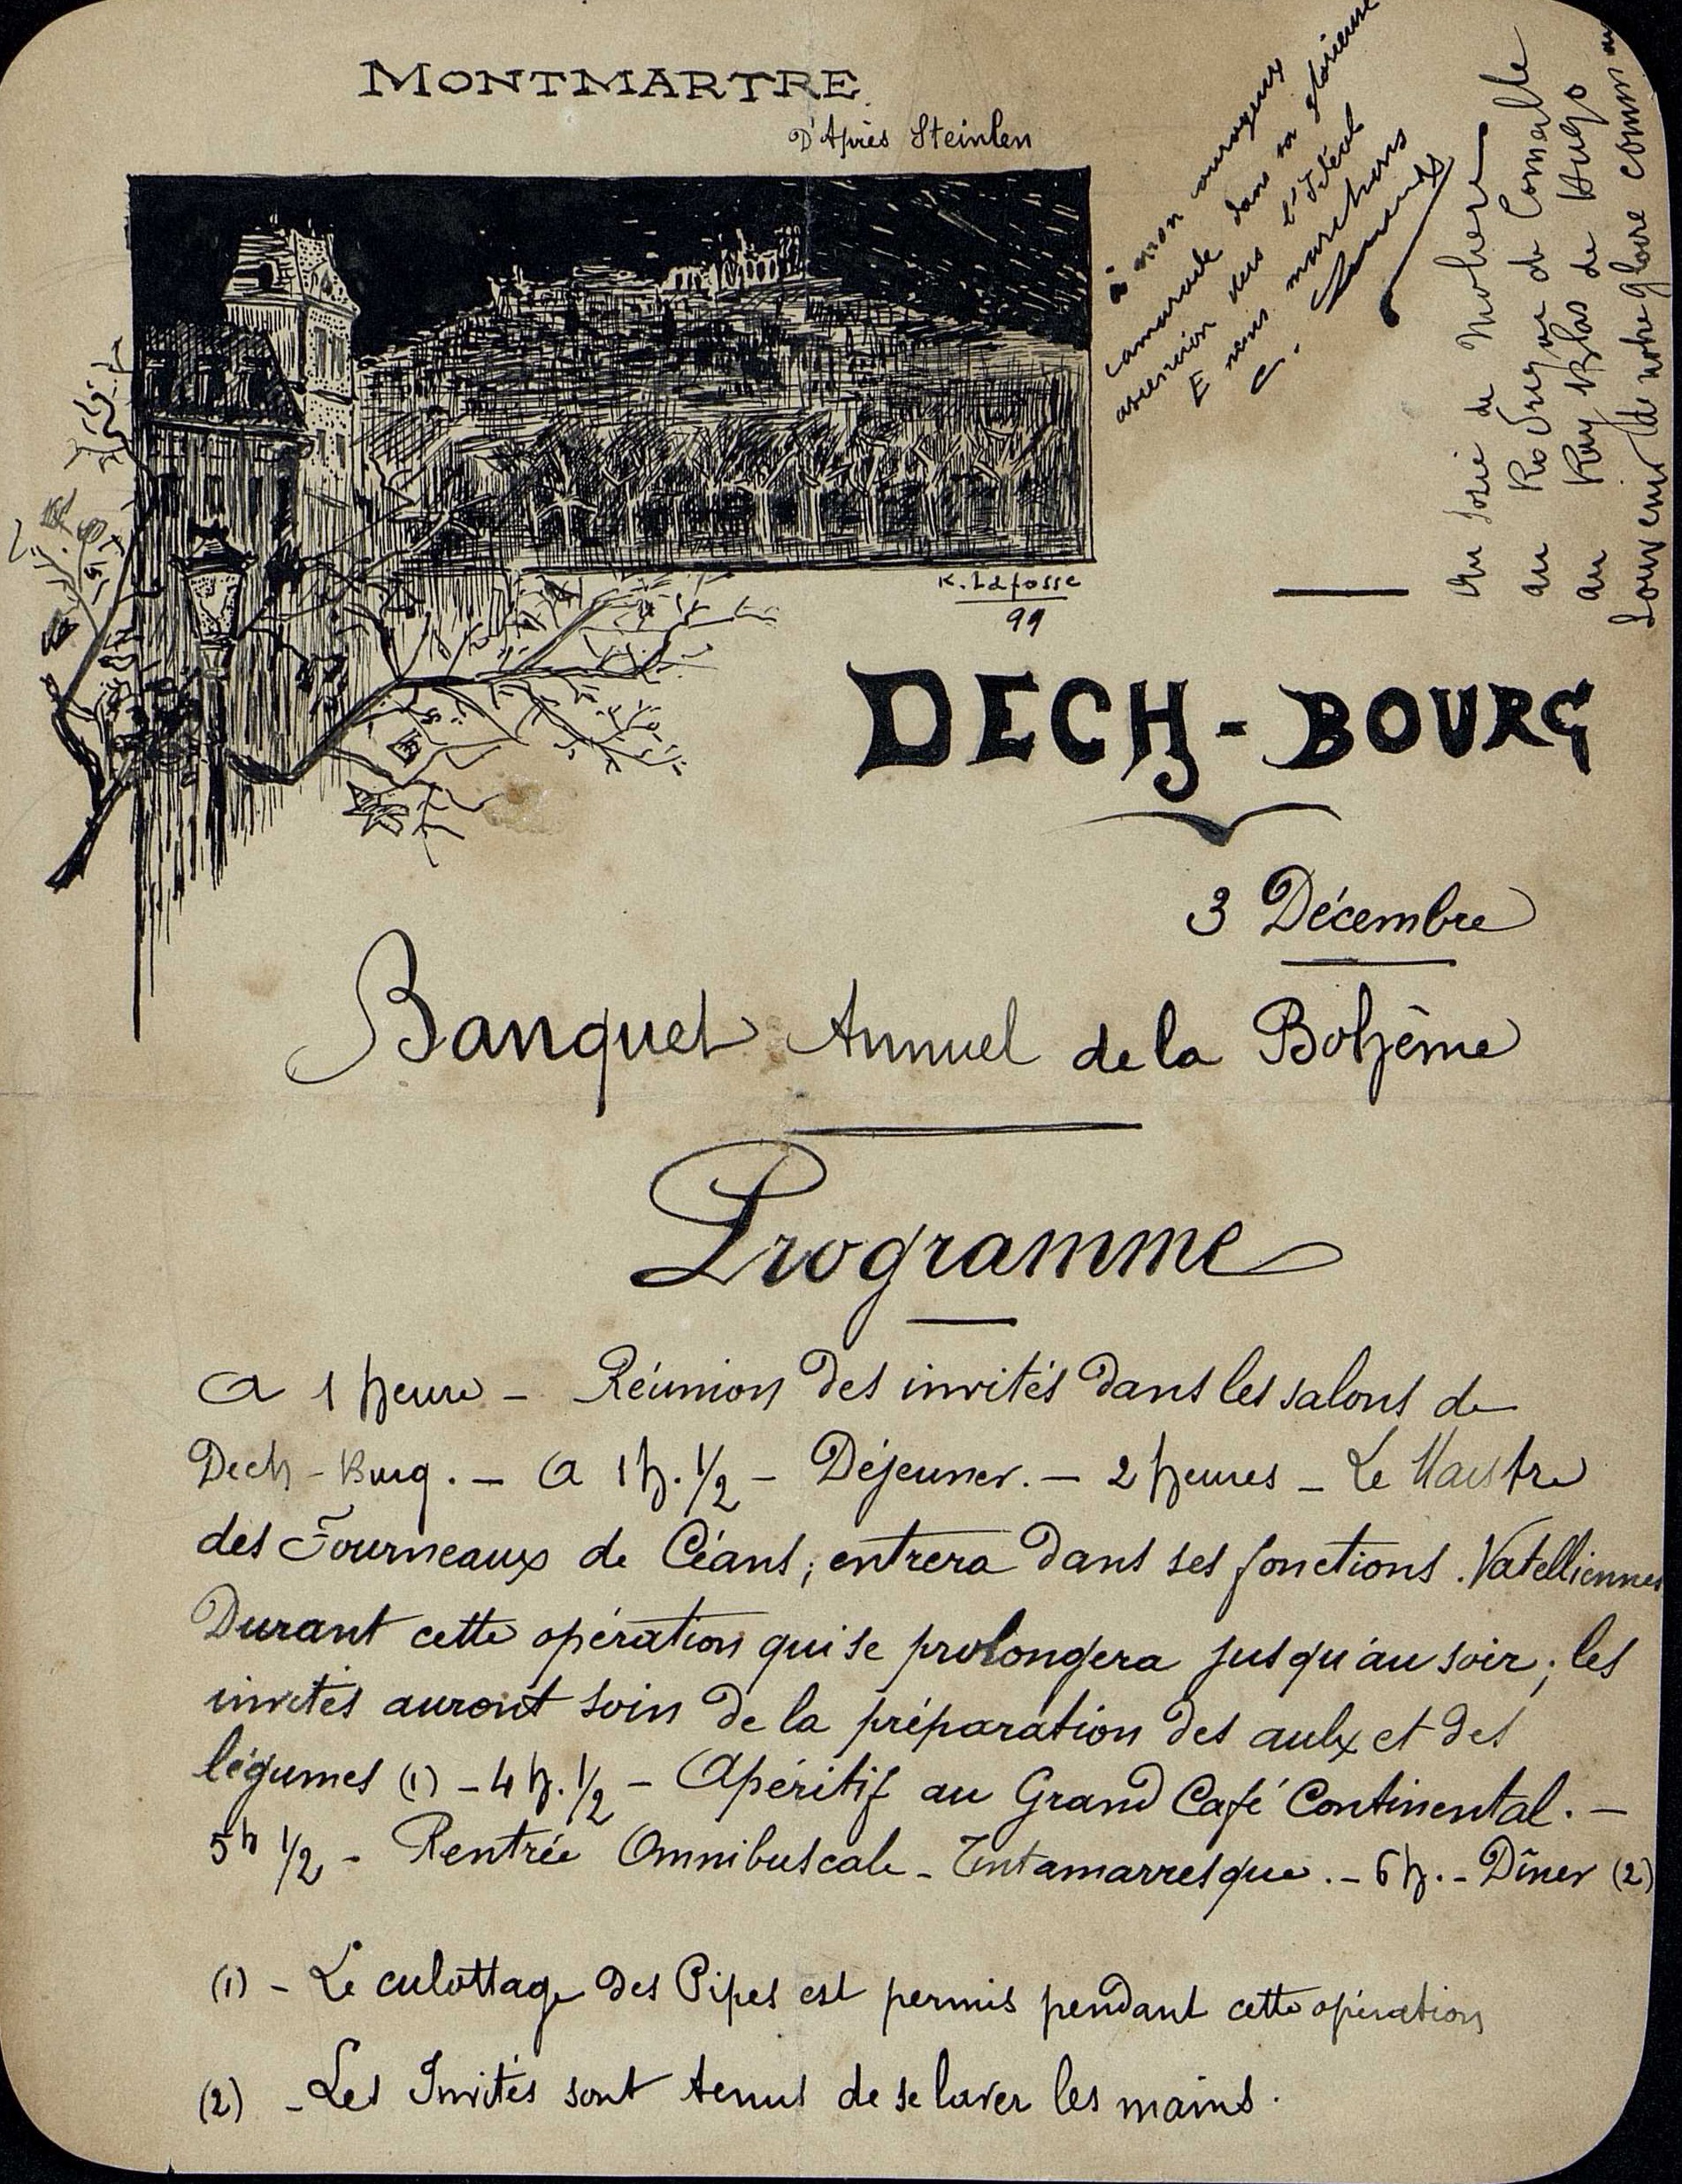 MONTMARTRE
D'Après Steinlen
K. Lafosse
99
à mon courageux
camarade dans sa glorieuse
ascension vers l'Idéal
E nous marchons
C.
Au Sosie de Molière
au Rodrigue de Corneille
au Ruy Blas de Hugo
Souvenir de notre gloire commune
DECH-BOURG
3 Décembre
Banquet Annuel de la Bohême
Programme
A 1 heure - Réunion des invités dans les salons de
Dech-Burg. - A 1h. 1/2 - Déjeuner. - 2 heures - Le Maistre
des Fourneaux de Céans, entrera dans ses fonctions. Vatelliennes
Durant cette opération qui se prolongera jusqu'au soir, les
invités auront soin de la préparation des aulx et des
légumes (1) - 4 h. 1/2 - Apéritif au Grand Café Continental. -
5h 1/2 - Rentrée Omnibuscale - Tintamarresque. - 6 h. - Dîner (2)
(1) - Le culottage des Pipes est permis pendant cette opération
(2) - Les Invités sont tenus de se laver les mains.